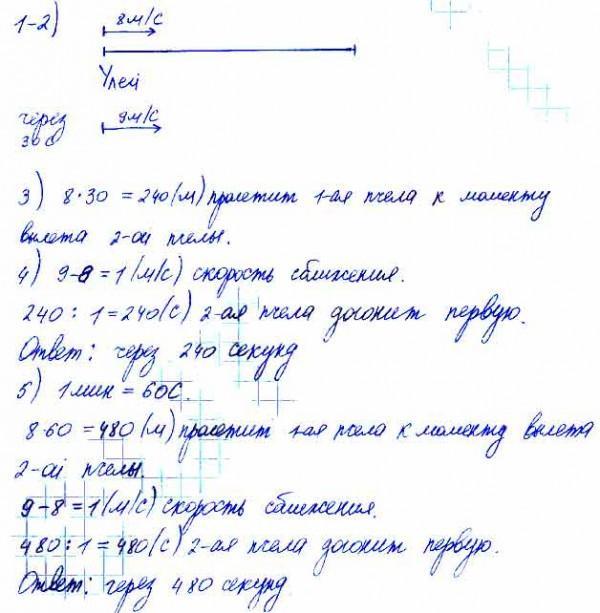 1-2) 8м/с
Улей
через 9м/с
30с
3) 8·30 = 240(м) пролетит 1-ая пчела к моменту
вылета 2-ой пчелы.
4) 9-8 = 1 (м/с) скорость сближения.
240 : 1 = 240(с) 2-ая пчела догонит первую.
Ответ: через 240 секунд
5) 1 мин = 60с.
8·60 = 480(м) пролетит 1-ая пчела к моменту вылета
2-ой пчелы.
9-8 = 1(м/с) скорость сближения.
480 : 1 = 480(с) 2-ая пчела догонит первую.
Ответ: через 480 секунд